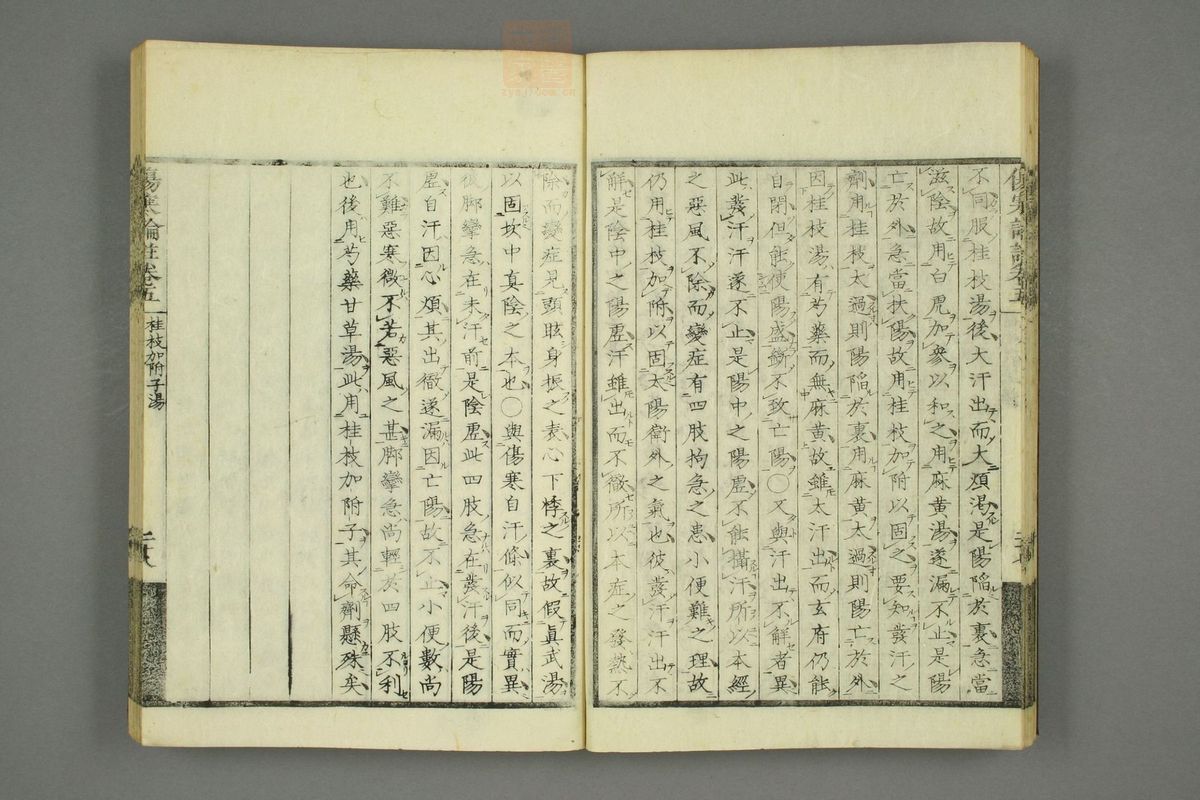 不同服桂枝湯後大汗出而大煩渇是陽陷於裏急當
滋陰故用白虎加參以和之用麻黄湯遂漏不止是陽
亡於外急當扶陽故用桂枝加附以固之要知發汗之
劑用桂枝太過則陽陷於裏用麻黄太過則陽亡於外
因桂枝湯有芍藥而無麻黄故雖大汗出而玄府仍能
自閉但能使陽盛斷不致亡陽〇又與汗出不解者異
此發汗汗遂不止是陽中之陽虚不能攝汗所以本經
之惡風不除而變症有四肢拘急之患小便難之理故
仍用桂枝加附以固太陽衛外之氣也彼發汗汗出不
解是陰中之陽虚汗雖出而不徹所以本症之發熱不
除而變症見頭眩身振之表心下悸之裏故假眞武湯
以固坎中真陰之本也〇與傷寒自汗條似同而實異
彼脚攣急在未汗前是陰虚此四肢急在發汗後是陽
虚自汗因心煩其出微遂漏因亡陽故不止小便數尚
不難惡寒微不若惡風之甚脚攣急尚輕於四肢不利
也後用芍藥甘草湯此用桂枝加附子其命劑懸殊矣
傷寒論註卷五
桂枝加附子湯